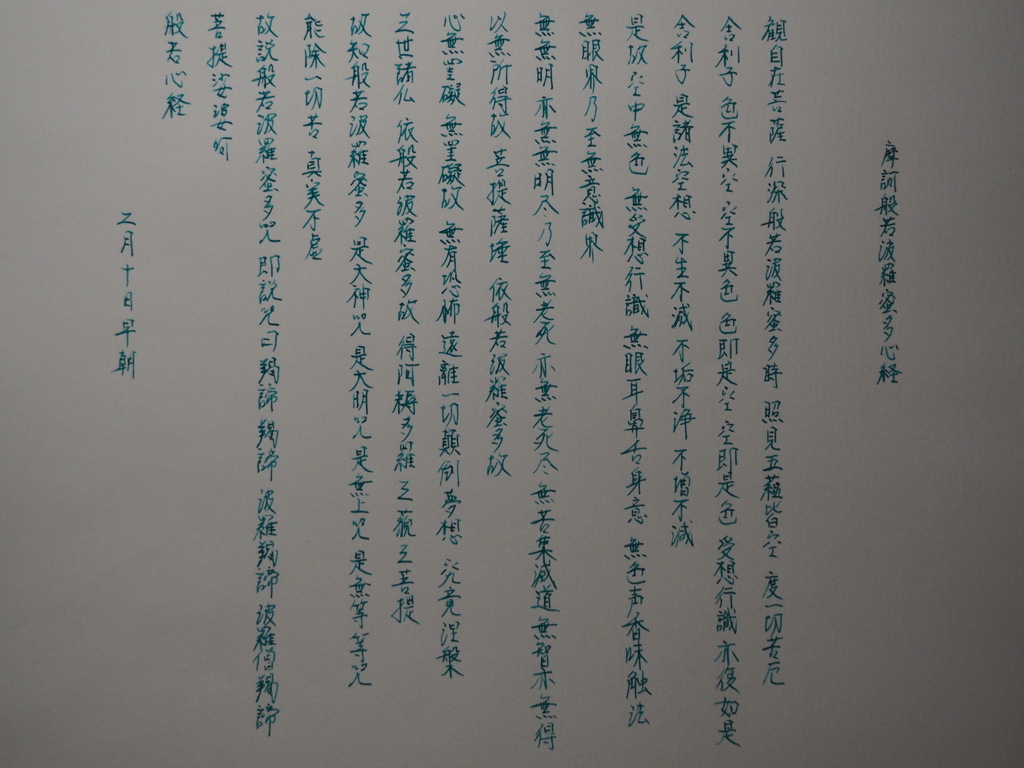 摩訶般若波羅蜜多心経
観自在菩薩 行深般若波羅蜜多時 照見五蘊皆空 度一切苦厄
舎利子 色不異空 空不異色 色即是空 空即是色 受想行識 亦復如是
舎利子 是諸法空想 不生不滅 不垢不浄 不増不減
是故空中無色 無受想行識 無眼耳鼻舌身意 無色声香味触法
無眼界乃至無意識界
無無明 亦無無明尽 乃至無老死 亦無老死尽 無苦集滅道 無智亦無得
以無所得故 菩提薩埵 依般若波羅蜜多故
心無罣礙 無罣礙故 無有恐怖 遠離一切顛倒夢想 究竟涅槃
三世諸仏 依般若波羅蜜多故 得阿耨多羅三藐三菩提
故知般若波羅蜜多 是大神咒 是大明咒 是無上咒 是無等等咒
能除一切苦 真実不虚
故説般若波羅蜜多咒 即説咒曰 羯諦 羯諦 波羅羯諦 波羅僧羯諦
菩提娑婆訶
般若心経
二月十日早朝